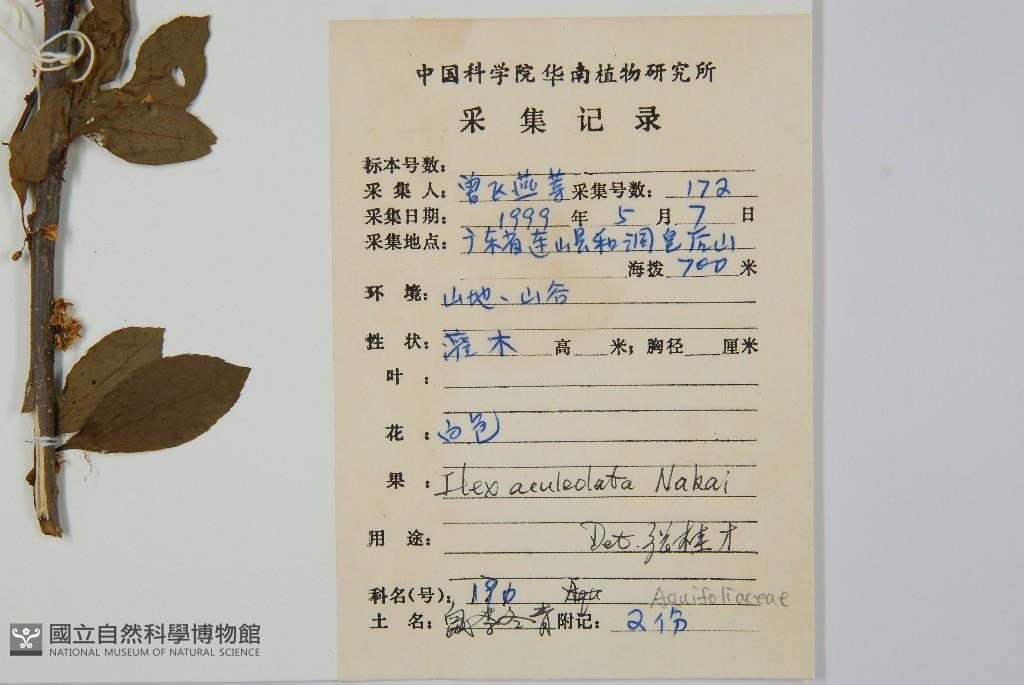 中国科学院华南植物研究所
采集记录
标本号数:
采集人: 曾飞燕等 采集号数: 172
采集日期: 1999 年 5 月 7 日
采集地点: 广东省连山县和洞皇后山
海拨 700 米
环境: 山地、山谷
性状: 灌木 高 米; 胸径 厘米
叶:
花: 白色
果: Ilex aculeolata Nakai
用途: Det. 张桂才
科名(号): 190 Aqu Aquifoliaceae
土名: 冬青 附记: 2份
國立自然科學博物館
NATIONAL MUSEUM OF NATURAL SCIENCE